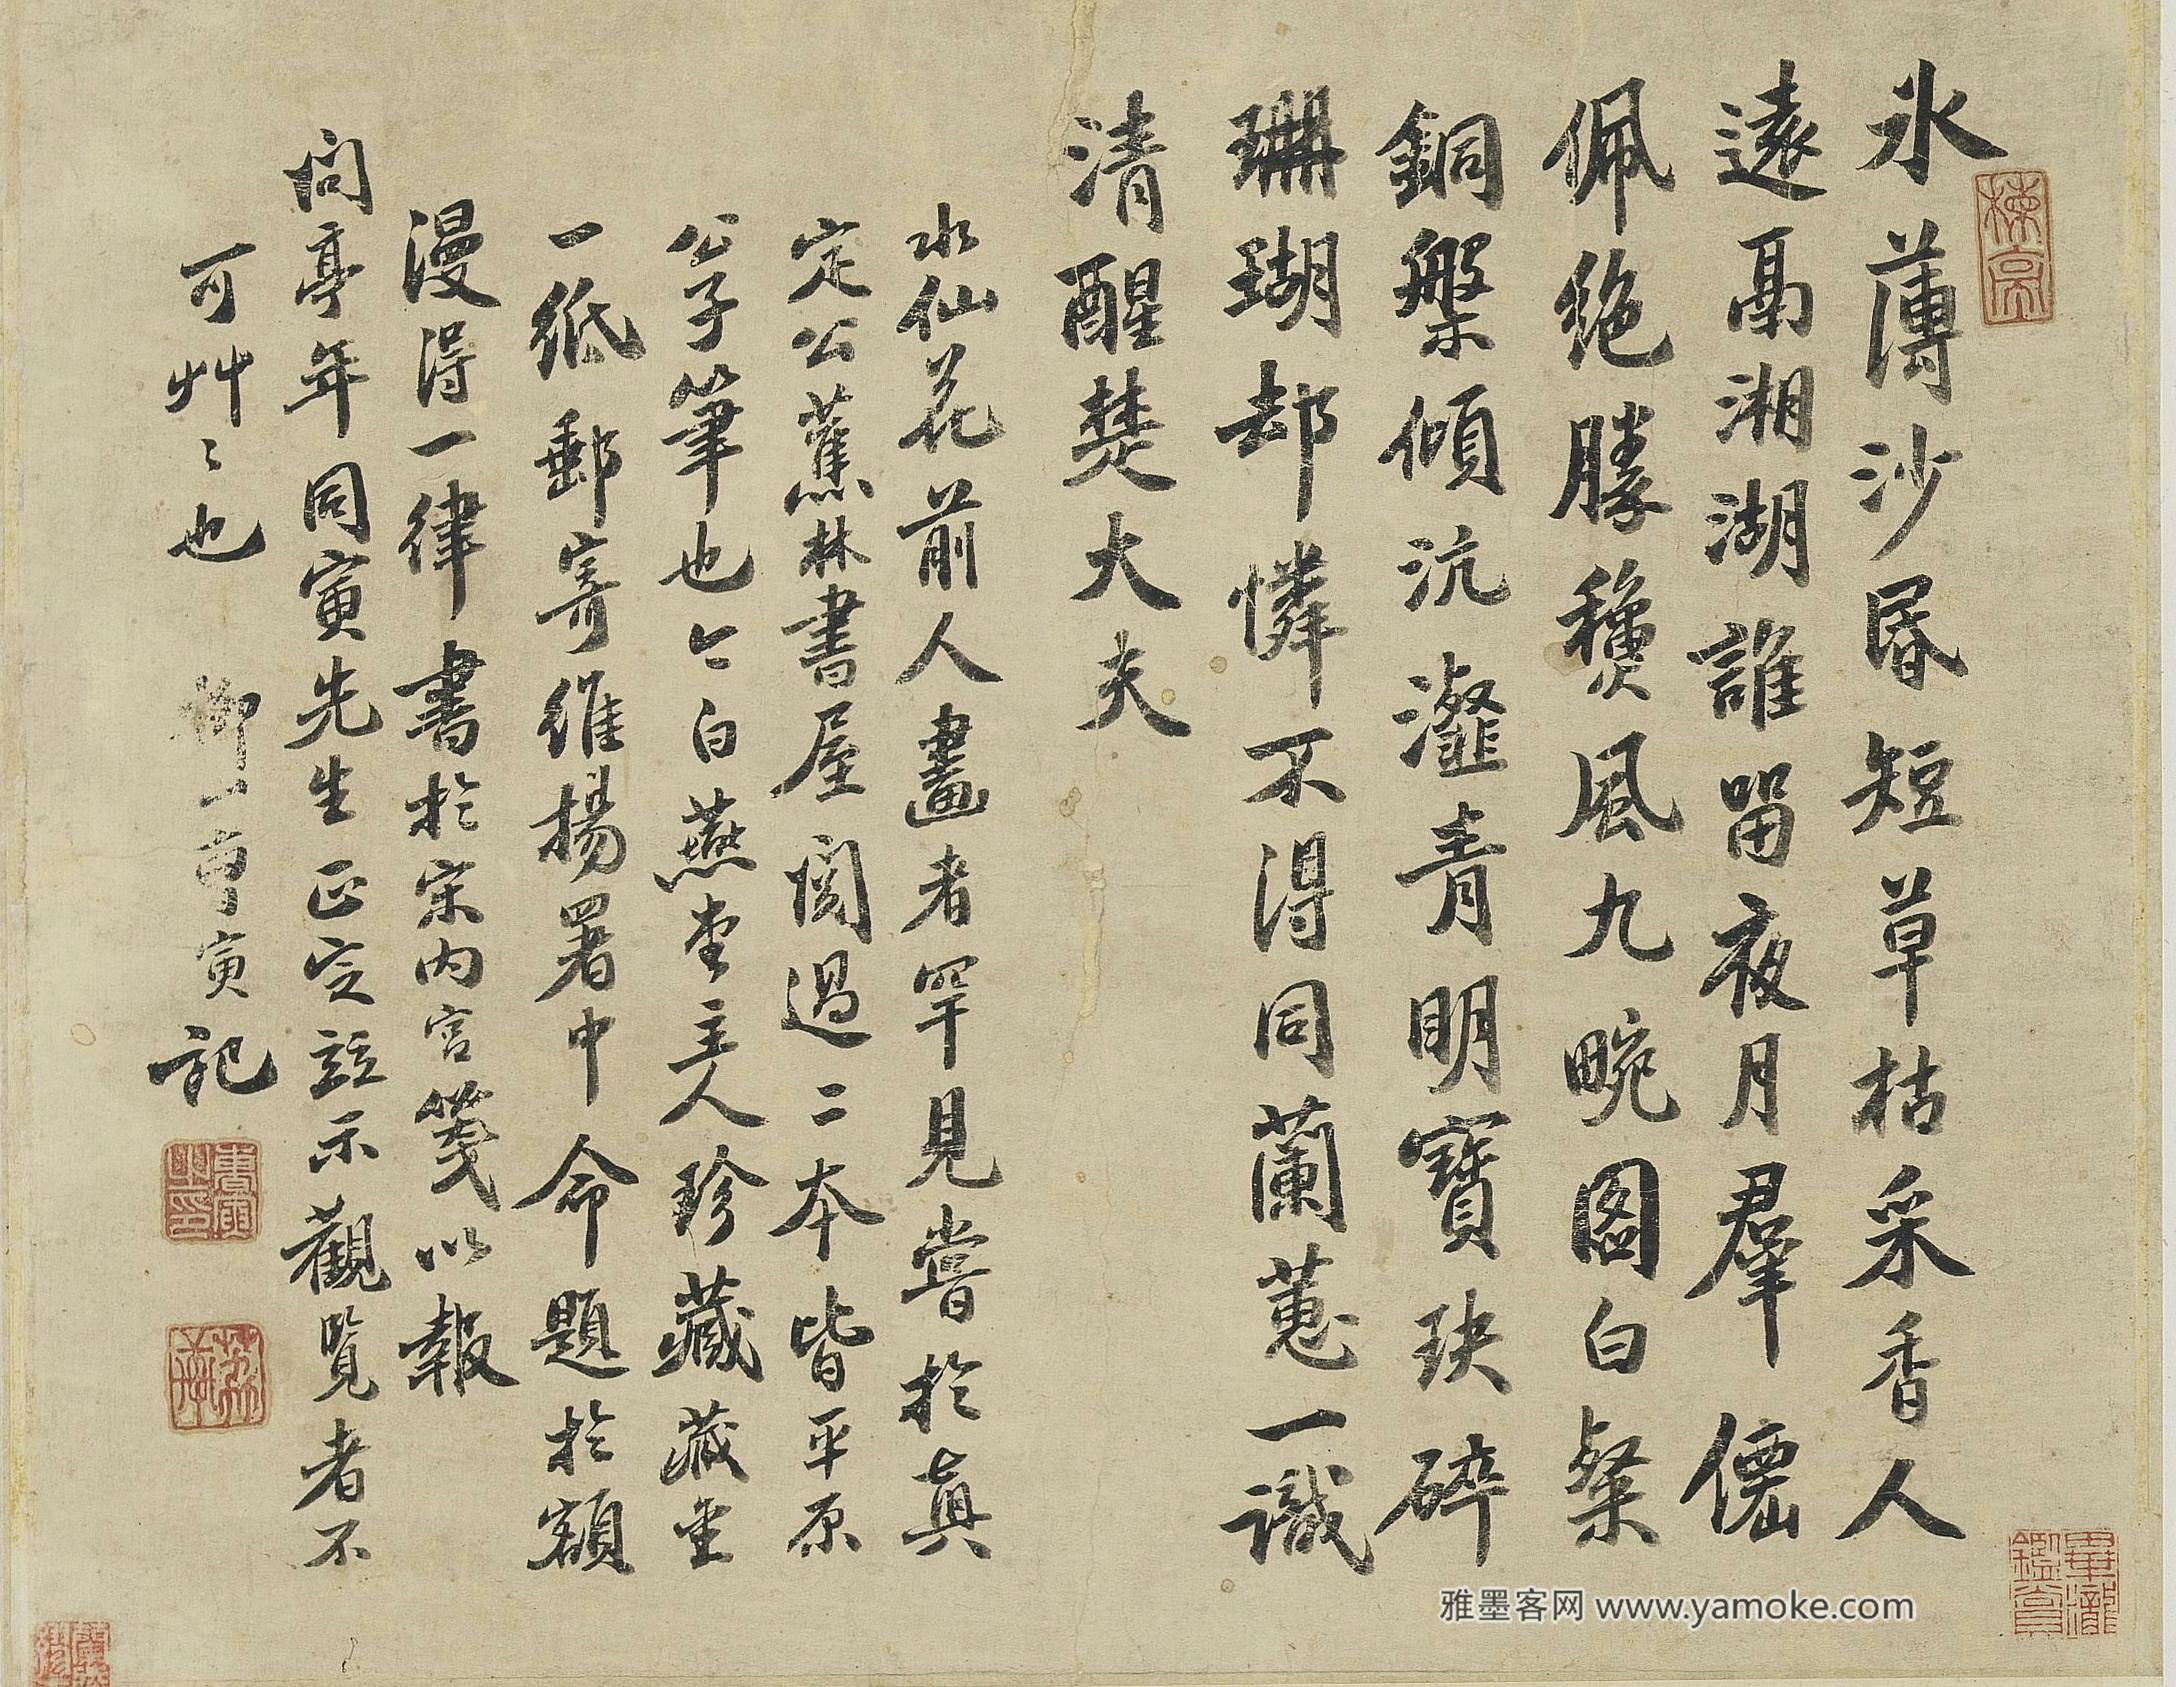 氷薄沙昏短草枯采香人
遠鬲湘湖誰留夜月羣僊
佩絶勝穨風九畹圖白粲
銅槃傾沆瀣青明寶玦碎
珊瑚却憐不得同蘭蕙一識
清醒楚大夫
水仙花前人畫者罕見嘗於真
定公蕉林書屋閱過二本皆平原
公子筆也今白燕堂主人珍藏藏
一紙郵寄維揚署中命題於額
漫得一律書於宋内宫箋以報
問亭年同寅先生正定並示觀覽者不
可艸々也 柳山曹寅記
楝亭
曹寅之印
荔軒
畢瀧鑑賞
雅墨客网 www.yamoke.com